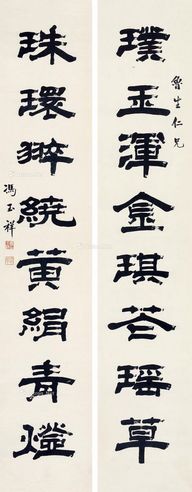 璞玉渾金琪花瑶草
魯生仁兄
珠環翠繞黃絹青燈
馮玉祥